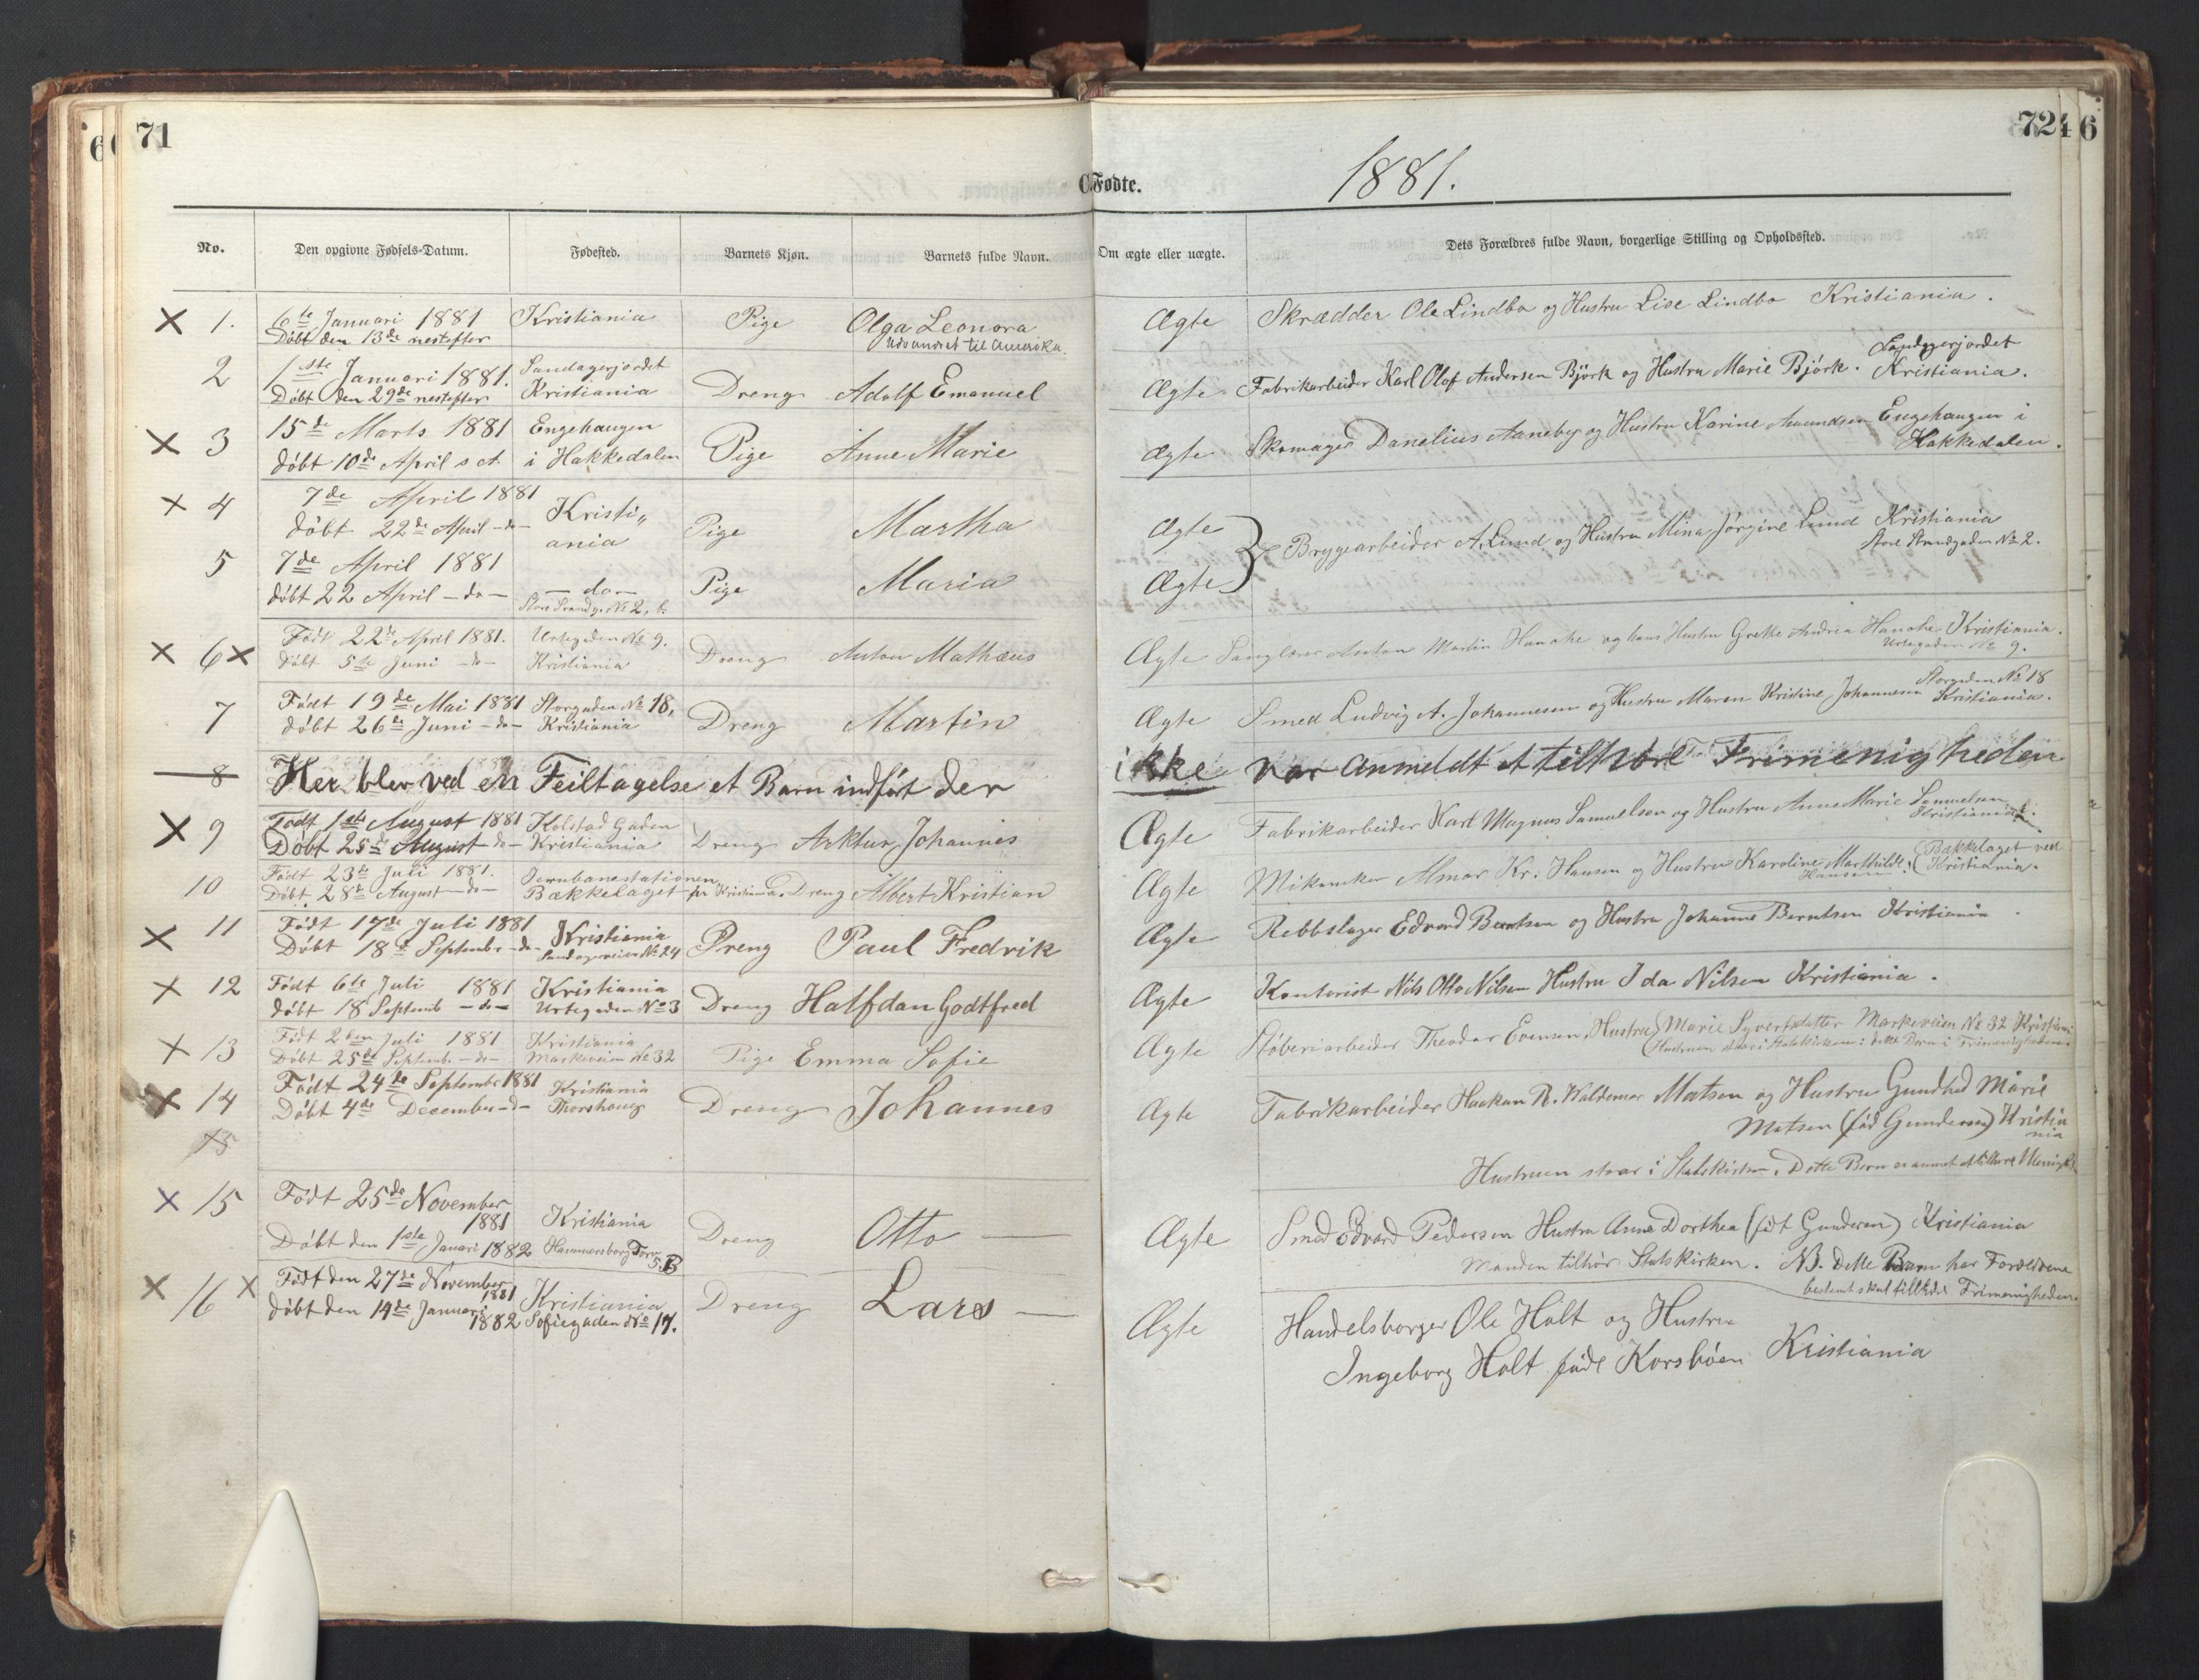 71
724
6
C. Fødte.
1881.
No.
Den opgivne Fødsels-Datum.
Fødested.
Barnets Kjøn.
Barnets fulde Navn.
Om ægte eller uægte.
Dets Forældres fulde Navn, borgerlige Stilling og Opholdssted.
X 1. 6te Januari 1881 Kristiania Pige Olga Leonora Ægte Skrædder Ole Lindbo og Hustru Lise Lindbo Kristiania.
Døbt den 13de nestefter Udvandret til Amerika.
2 1ste Januari 1881. Sandagerjordet Dreng Adolf Emanuel Ægte Fabrikarbeider Karl Olof Andersen Björk og Hustru Marie Björk. Sandagerjordet
Døbt den 29de nestefter Kristiania Kristiania.
X 3 15de Marts 1881 Engehaugen Pige Anne Marie Ægte Skomager Danelius Aaneby og Hustru Karine Amundsen Engehaugen i
døbt 10de April s A i Hakkedalen Hakkedalen.
X 4 7de April 1881 Kristi„ Pige Martha Ægte Bryggearbeider A. Lund og Hustru Mina Jørgine Lund Kristiania
døbt 22de April -do- ania Store Strandgaden No 2.
5 7de April 1881 -do- Pige Maria Ægte
døbt 22 April -do- Store Strandg. No 2, b.
X 6 X Født 22de April 1881. Urtegaden No 9. Dreng Anton Mathæus Ægte Sanglærer Anton Martin Hanche og hans Hustru Grethe Andrea Hanche Kristiania.
døbt 5te Juni -do- Kristiania Urtegaden No 9.
7 Født 19de Mai 1881 Storgaden No 18, Dreng Martin Ægte Smed Ludvig A. Johannesen og Hustru Maren Kristine Johannesen Storgaden No 18
døbt 26de Juni -do- Kristiania Kristiania.
8 Her blev ved en Feiltagelse et Barn indført der ikke var anmeldt at tilhøre Frimenigheden
X 9 Født 1ste August 1881 Kolstad Gaden Dreng Arktur Johannes Ægte Fabrikarbeider Karl Magnus Samuelsen og Hustru Anne Marie Samuelsen
Døbt 25de August do- Kristiania Kristiania.
10 Født 23de Juli 1881. Jernbanestationen Dreng Albert Kristian Ægte Mikaniker Almar Kr. Hansen og Hustru Karoline Marthilde (Bækkelaget ved
Døbt 28de August -do- Bækkelaget pr Kristiania. Hansen. Kristiania.
X 11 Født 17de Juli 1881 Kristiania Dreng Paul Fredrik Ægte Rebbslager Edvard Berntsen og Hustru Johanne Berntsen Kristiania.
Døbt 18de September -do- Sandagerveien No 24
X 12 Født 6te Juli 1881 Kristiania Dreng Halfdan Godtfred Ægte Kontorist Nils Otto Nilsen Hustru Ida Nilsen Kristiania.
døbt 18 Septemb -do- Urtegaden No 3
X 13 Født 2den Juli 1881 Kristiania Pige Emma Sofie Ægte Støberiarbeider Theodor Evensen, Hustru Marie Syvertsdatter Markeveien No 32 Kristiani
Døbt 25de Septemb. -do- Markeveien No 32 (Hustruen staar i Statskirken: dette Barn i Frimenigheden.
X 14 Født 24de Septembr 1881 Kristiania Dreng Johannes Ægte Fabrikarbeider Haakan R. Waldemar Matsen og Hustru Gundhild Marie
Døbt 4de December -do- Thorshoug Matsen (fød Gundersen) Kristia
nia
15
Hustruen staar i Statskirken. Dette Barn er anmeldt at tilhøre Menigh.
X 15 Født 25de November Kristiania Dreng Otto Ægte Smed Edvard Pedersen Hustru Anne Dorthea (født Gundersen) Kristiania
1881
Døbt den 1ste Januari 1882 Hammersborg Torv 5.B Manden tilhør Statskirken. NB. Dette Barn har Forældrene
bestemt skal tilhøre Frimenigheden.
X 16 X Født den 27de November Kristiania Dreng Lars Ægte Handelsborger Ole Holt og Hustru
1881
døbt den 14de Januari Sofiegaden No 17. Ingeborg Holt født Korsbøen Kristiania
1882